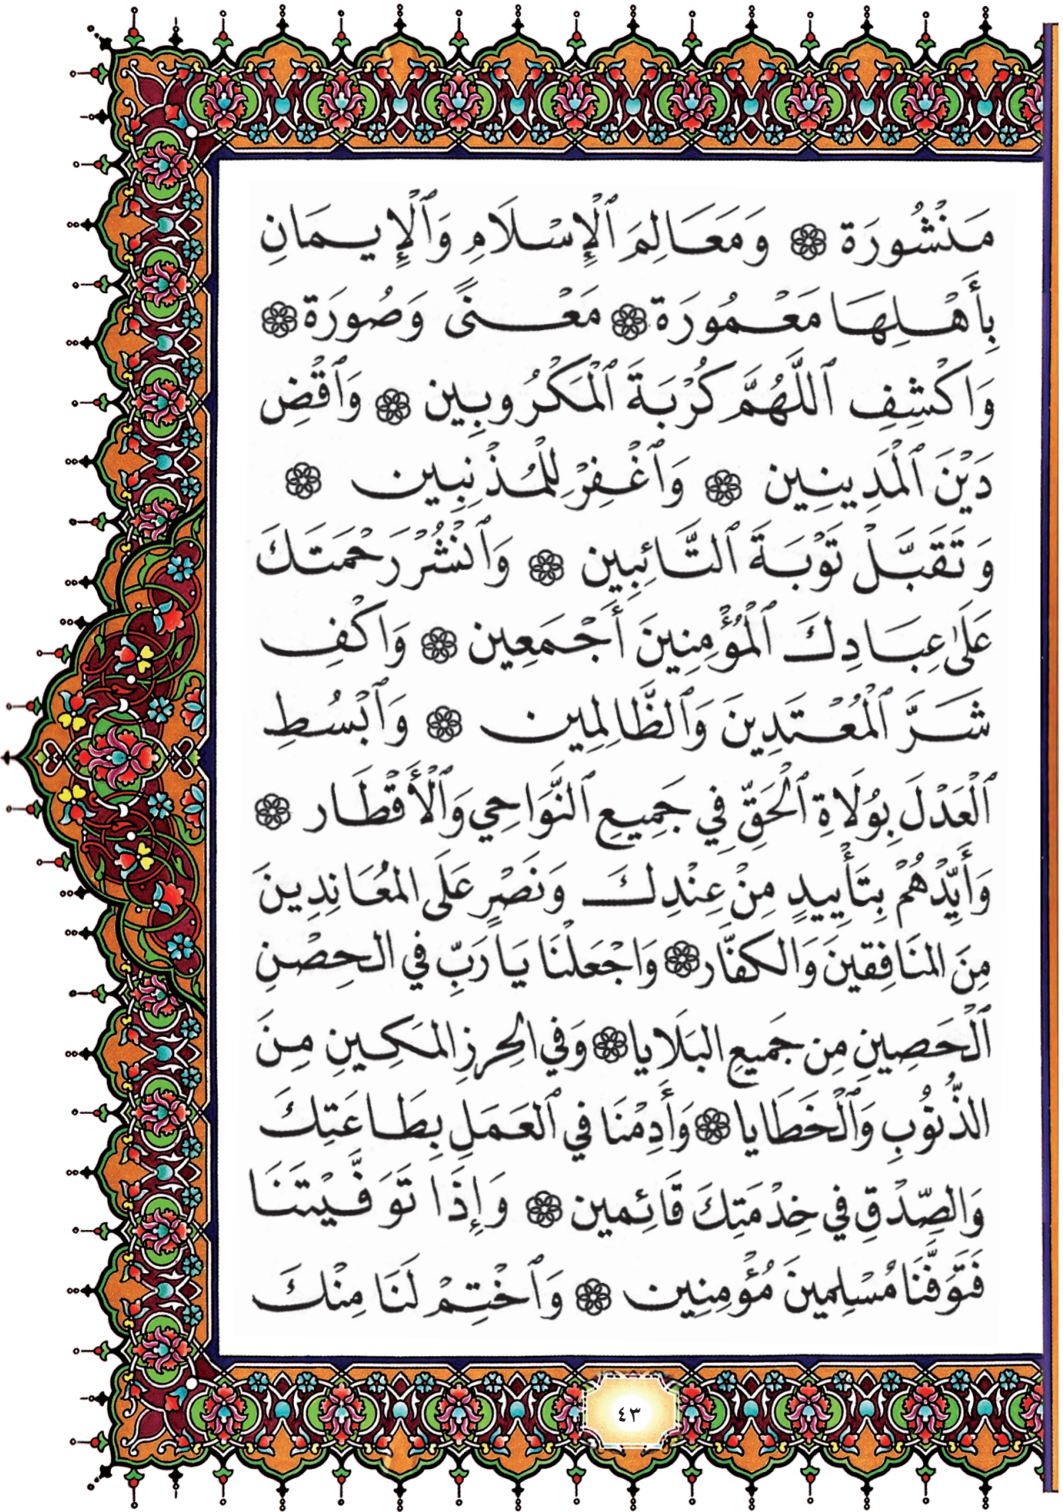 مَنْشُورَة ۞ وَمَعَالِمَ ٱلْإِسْلَامِ وَٱلْإِيمَانِ
بِأَهْلِهَا مَعْمُورَة ۞ مَعْنًى وَصُورَة ۞
وَاكْشِفِ ٱللَّهُمَّ كُرْبَةَ ٱلْمَكْرُوبِين ۞ وَٱقْضِ
دَيْنَ ٱلْمَدِينِين ۞ وَٱغْفِرْ لِلْمُذْنِبِين ۞
وَتَقَبَّلْ تَوْبَةَ ٱلتَّائِبِين ۞ وَٱنْشُرْ رَحْمَتَكَ
عَلَىٰ عِبَادِكَ ٱلْمُؤْمِنِينَ أَجْمَعِين ۞ وَاكْفِ
شَرَّ ٱلْمُعْتَدِينَ وَٱلظَّالِمِين ۞ وَٱبْسُطِ
ٱلْعَدْلَ بِوُلَاةِ ٱلْحَقِّ فِي جَمِيعِ ٱلنَّوَاحِي وَٱلْأَقْطَار ۞
وَأَيِّدْهُمْ بِتَأْيِيدٍ مِنْ عِنْدِكَ وَنَصْرٍ عَلَى المُعَانِدِينَ
مِنَ المنَافِقينَ وَالكفَّار ۞ وَاجْعَلْنَا يَا رَبِّ في الحِصْنِ
ٱلْحَصِينِ مِن جَميعِ البَلَايا ۞ وَفي الحِرزِ المَكِينِ مِنَ
الذُّنُوبِ وَٱلْخَطَايا ۞ وَأَدِمْنَا في ٱلعَمَلِ بِطَاعَتِكَ
وَالصِّدْقِ في خِدْمَتِكَ قَائِمين ۞ وَإِذَا تَوَفَّيْتَنَا
فَتَوَفَّنَا مُسْلِمينَ مُؤْمِنِين ۞ وَٱخْتِمْ لَنَا مِنْكَ
٤٣